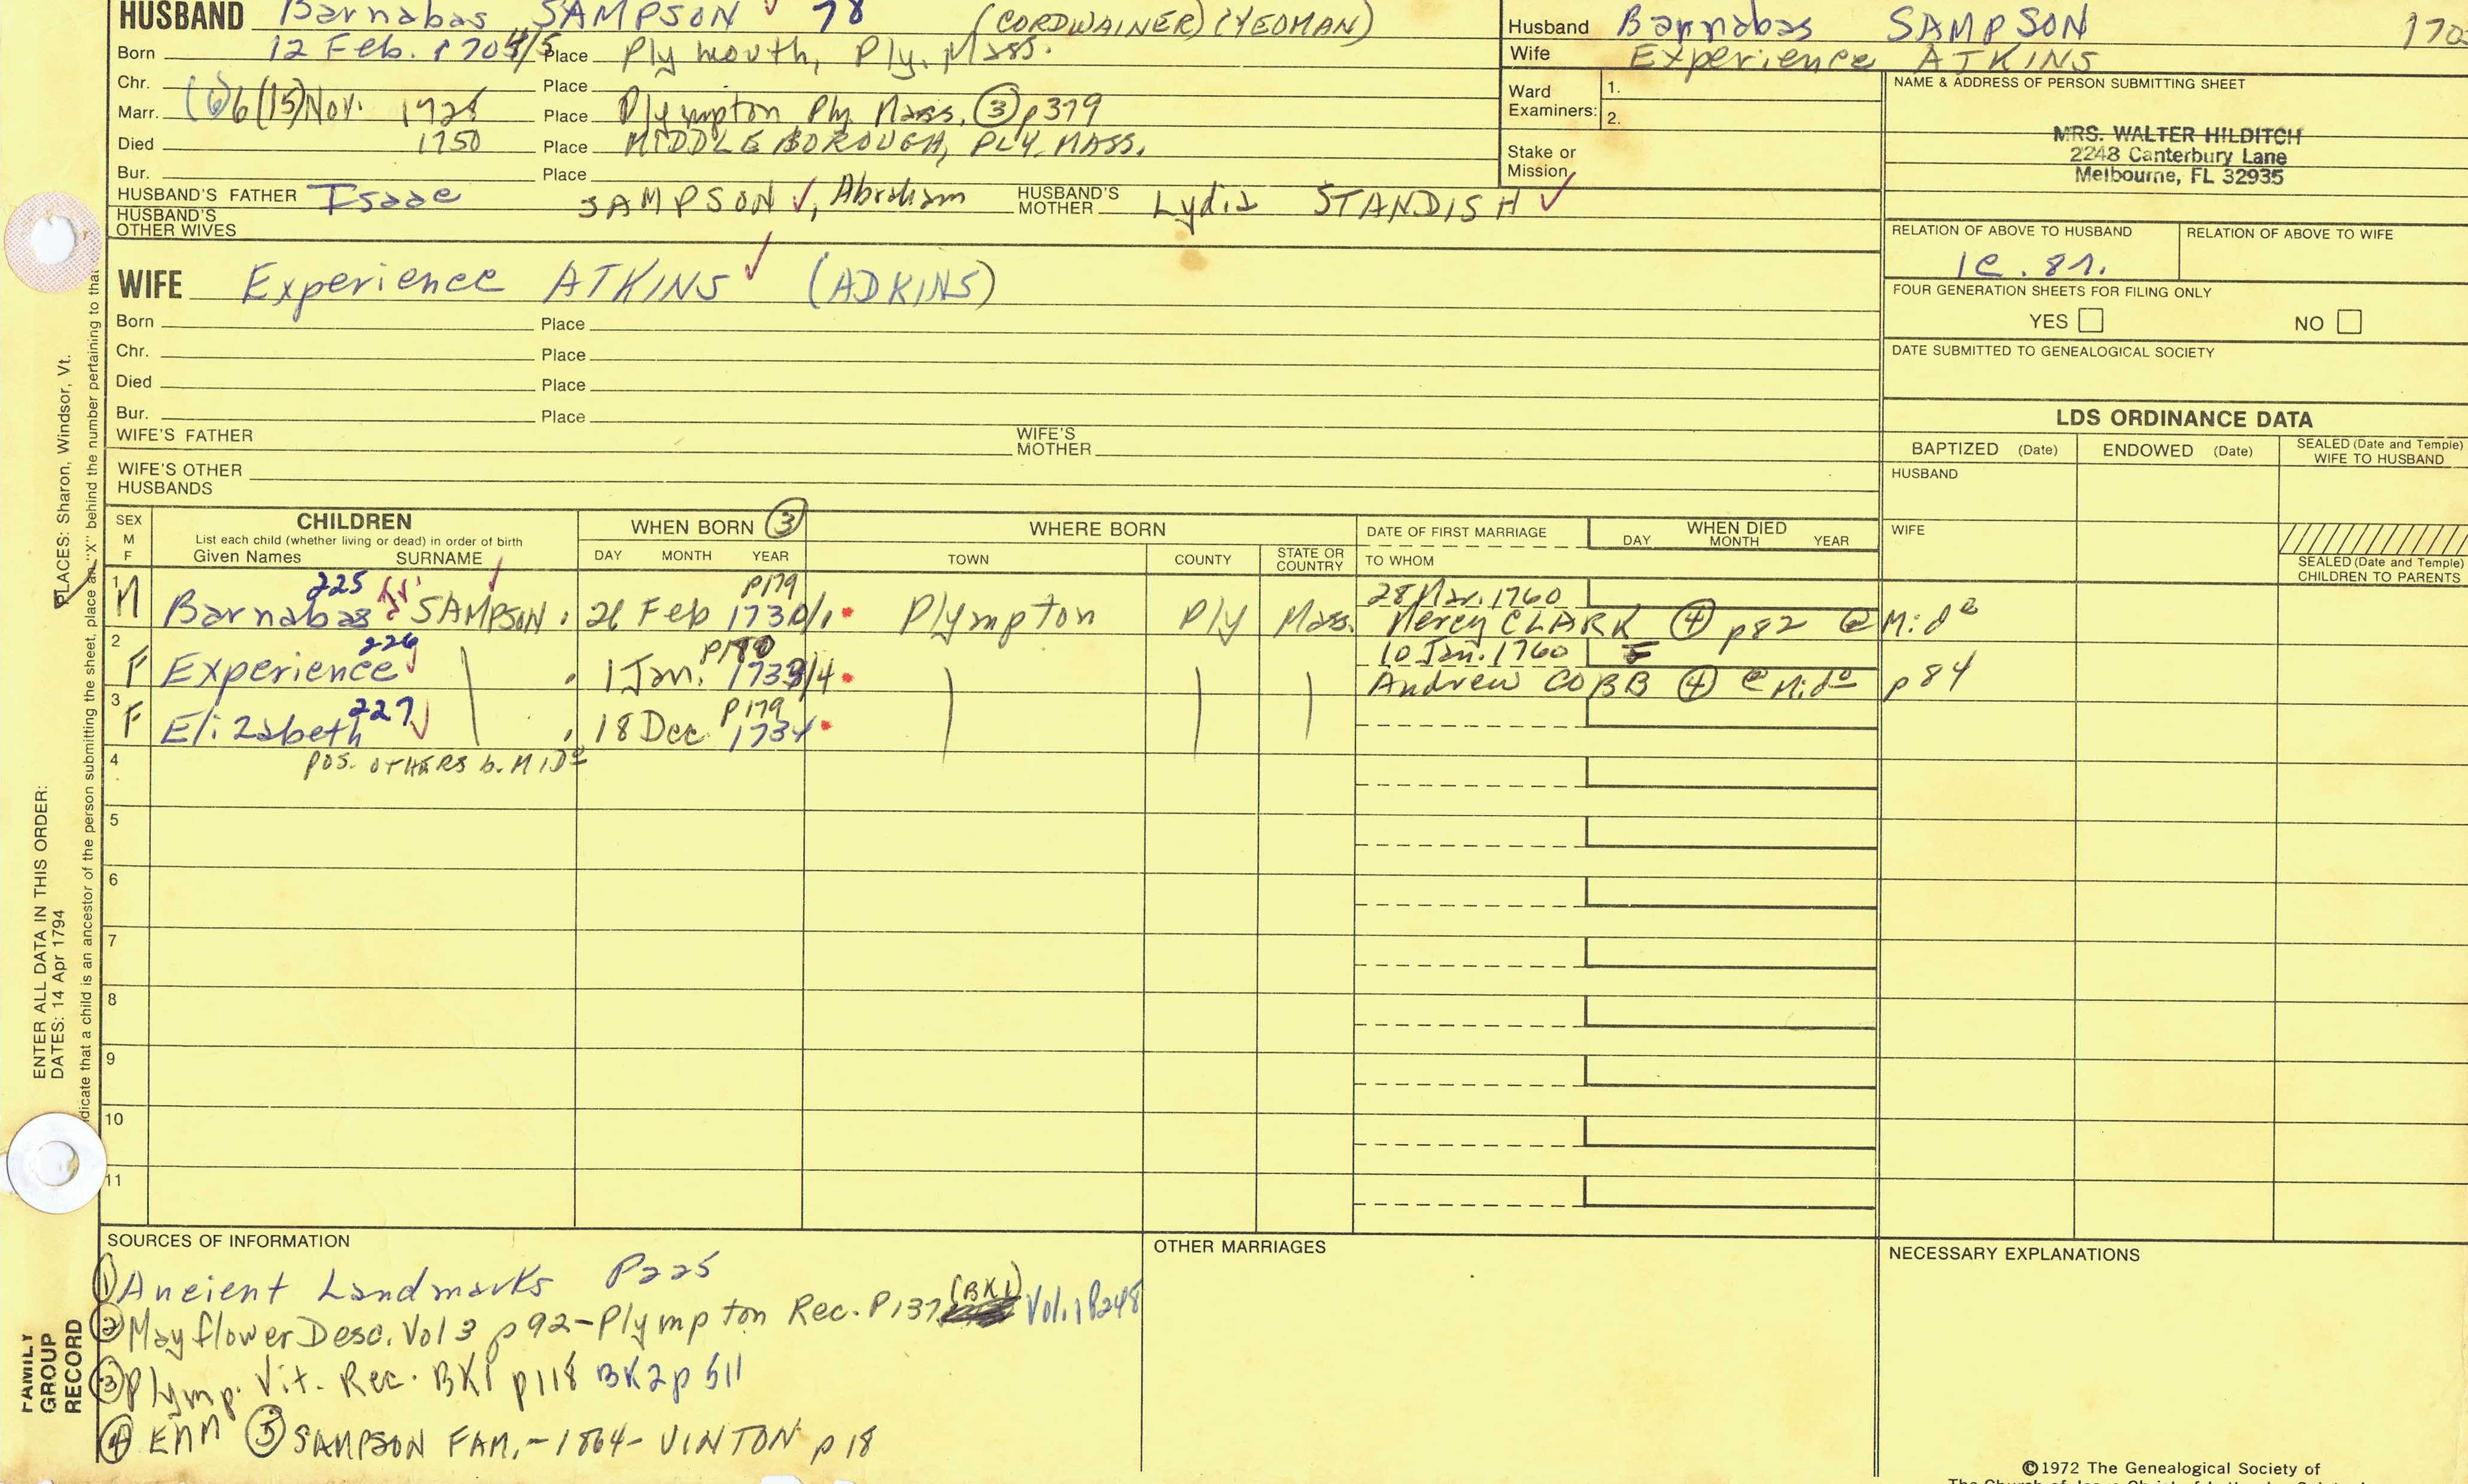 HUSBAND Barnabas SAMPSON ✓ 78 (CORDWAINER) (YEOMAN)
Born 12 Feb. 1704/5 Place Plymouth, Ply. Mass.
Chr. Place
Marr. (6)6(15)Nov. 1728 Place Plympton Ply Mass. ③ p379
Died 1750 Place MIDDLEBOROUGH, PLY. MASS.
Bur. Place
HUSBAND'S FATHER Isaac SAMPSON ✓, Abraham HUSBAND'S MOTHER Lydia STANDISH ✓
HUSBAND'S OTHER WIVES
WIFE Experience ATKINS ✓ (ADKINS)
Born Place
Chr. Place
Died Place
Bur. Place
WIFE'S FATHER WIFE'S MOTHER
WIFE'S OTHER HUSBANDS
Husband Barnabas SAMPSON 170
Wife Experience ATKINS
Ward Examiners: 1.
2.
Stake or Mission
NAME & ADDRESS OF PERSON SUBMITTING SHEET
MRS. WALTER HILDITCH
2248 Canterbury Lane
Melbourne, FL 32935
RELATION OF ABOVE TO HUSBAND RELATION OF ABOVE TO WIFE
FOUR GENERATION SHEETS FOR FILING ONLY
YES NO
DATE SUBMITTED TO GENEALOGICAL SOCIETY
LDS ORDINANCE DATA
BAPTIZED (Date) ENDOWED (Date) SEALED (Date and Temple) WIFE TO HUSBAND
HUSBAND
WIFE
SEALED (Date and Temple) CHILDREN TO PARENTS
SEX M F CHILDREN WHEN BORN ③ WHERE BORN DATE OF FIRST MARRIAGE WHEN DIED
List each child (whether living or dead) in order of birth
Given Names SURNAME DAY MONTH YEAR TOWN COUNTY STATE OR COUNTRY TO WHOM DAY MONTH YEAR
225 ✓ P179 28 Mar. 1760
1 M Barnabas SAMPSON 26 Feb 1730/1 Plympton Ply Mass. Mercy CLARK ④ p82 @ Mido
226 10 Jan. 1760
2 F Experience ✓ 1 Jan. 1733/4 Andrew COBB ④ @ Mido p84
227 P179
3 F Elizabeth ✓ 18 Dec 1734
4 POS. OTHERS b. MIDo
5
6
7
8
9
10
11
SOURCES OF INFORMATION
① Ancient Landmarks P225
② Mayflower Desc. Vol 3 p92-Plympton Rec. P137 (BK1) Vol. 1 P248
③ Plymp. Vit. Rec. BK1 p118 BK2 p 511
④ EMM ⑤ SAMPSON FAM.-1864-VINTON p 18
OTHER MARRIAGES
NECESSARY EXPLANATIONS
©1972 The Genealogical Society of
PLACES: Sharon, Windsor, Vt.
ENTER ALL DATA IN THIS ORDER:
DATES: 14 Apr 1794
indicate that a child is an ancestor of the person submitting the sheet, place an "X" behind the number pertaining to that
FAMILY
GROUP
RECORD